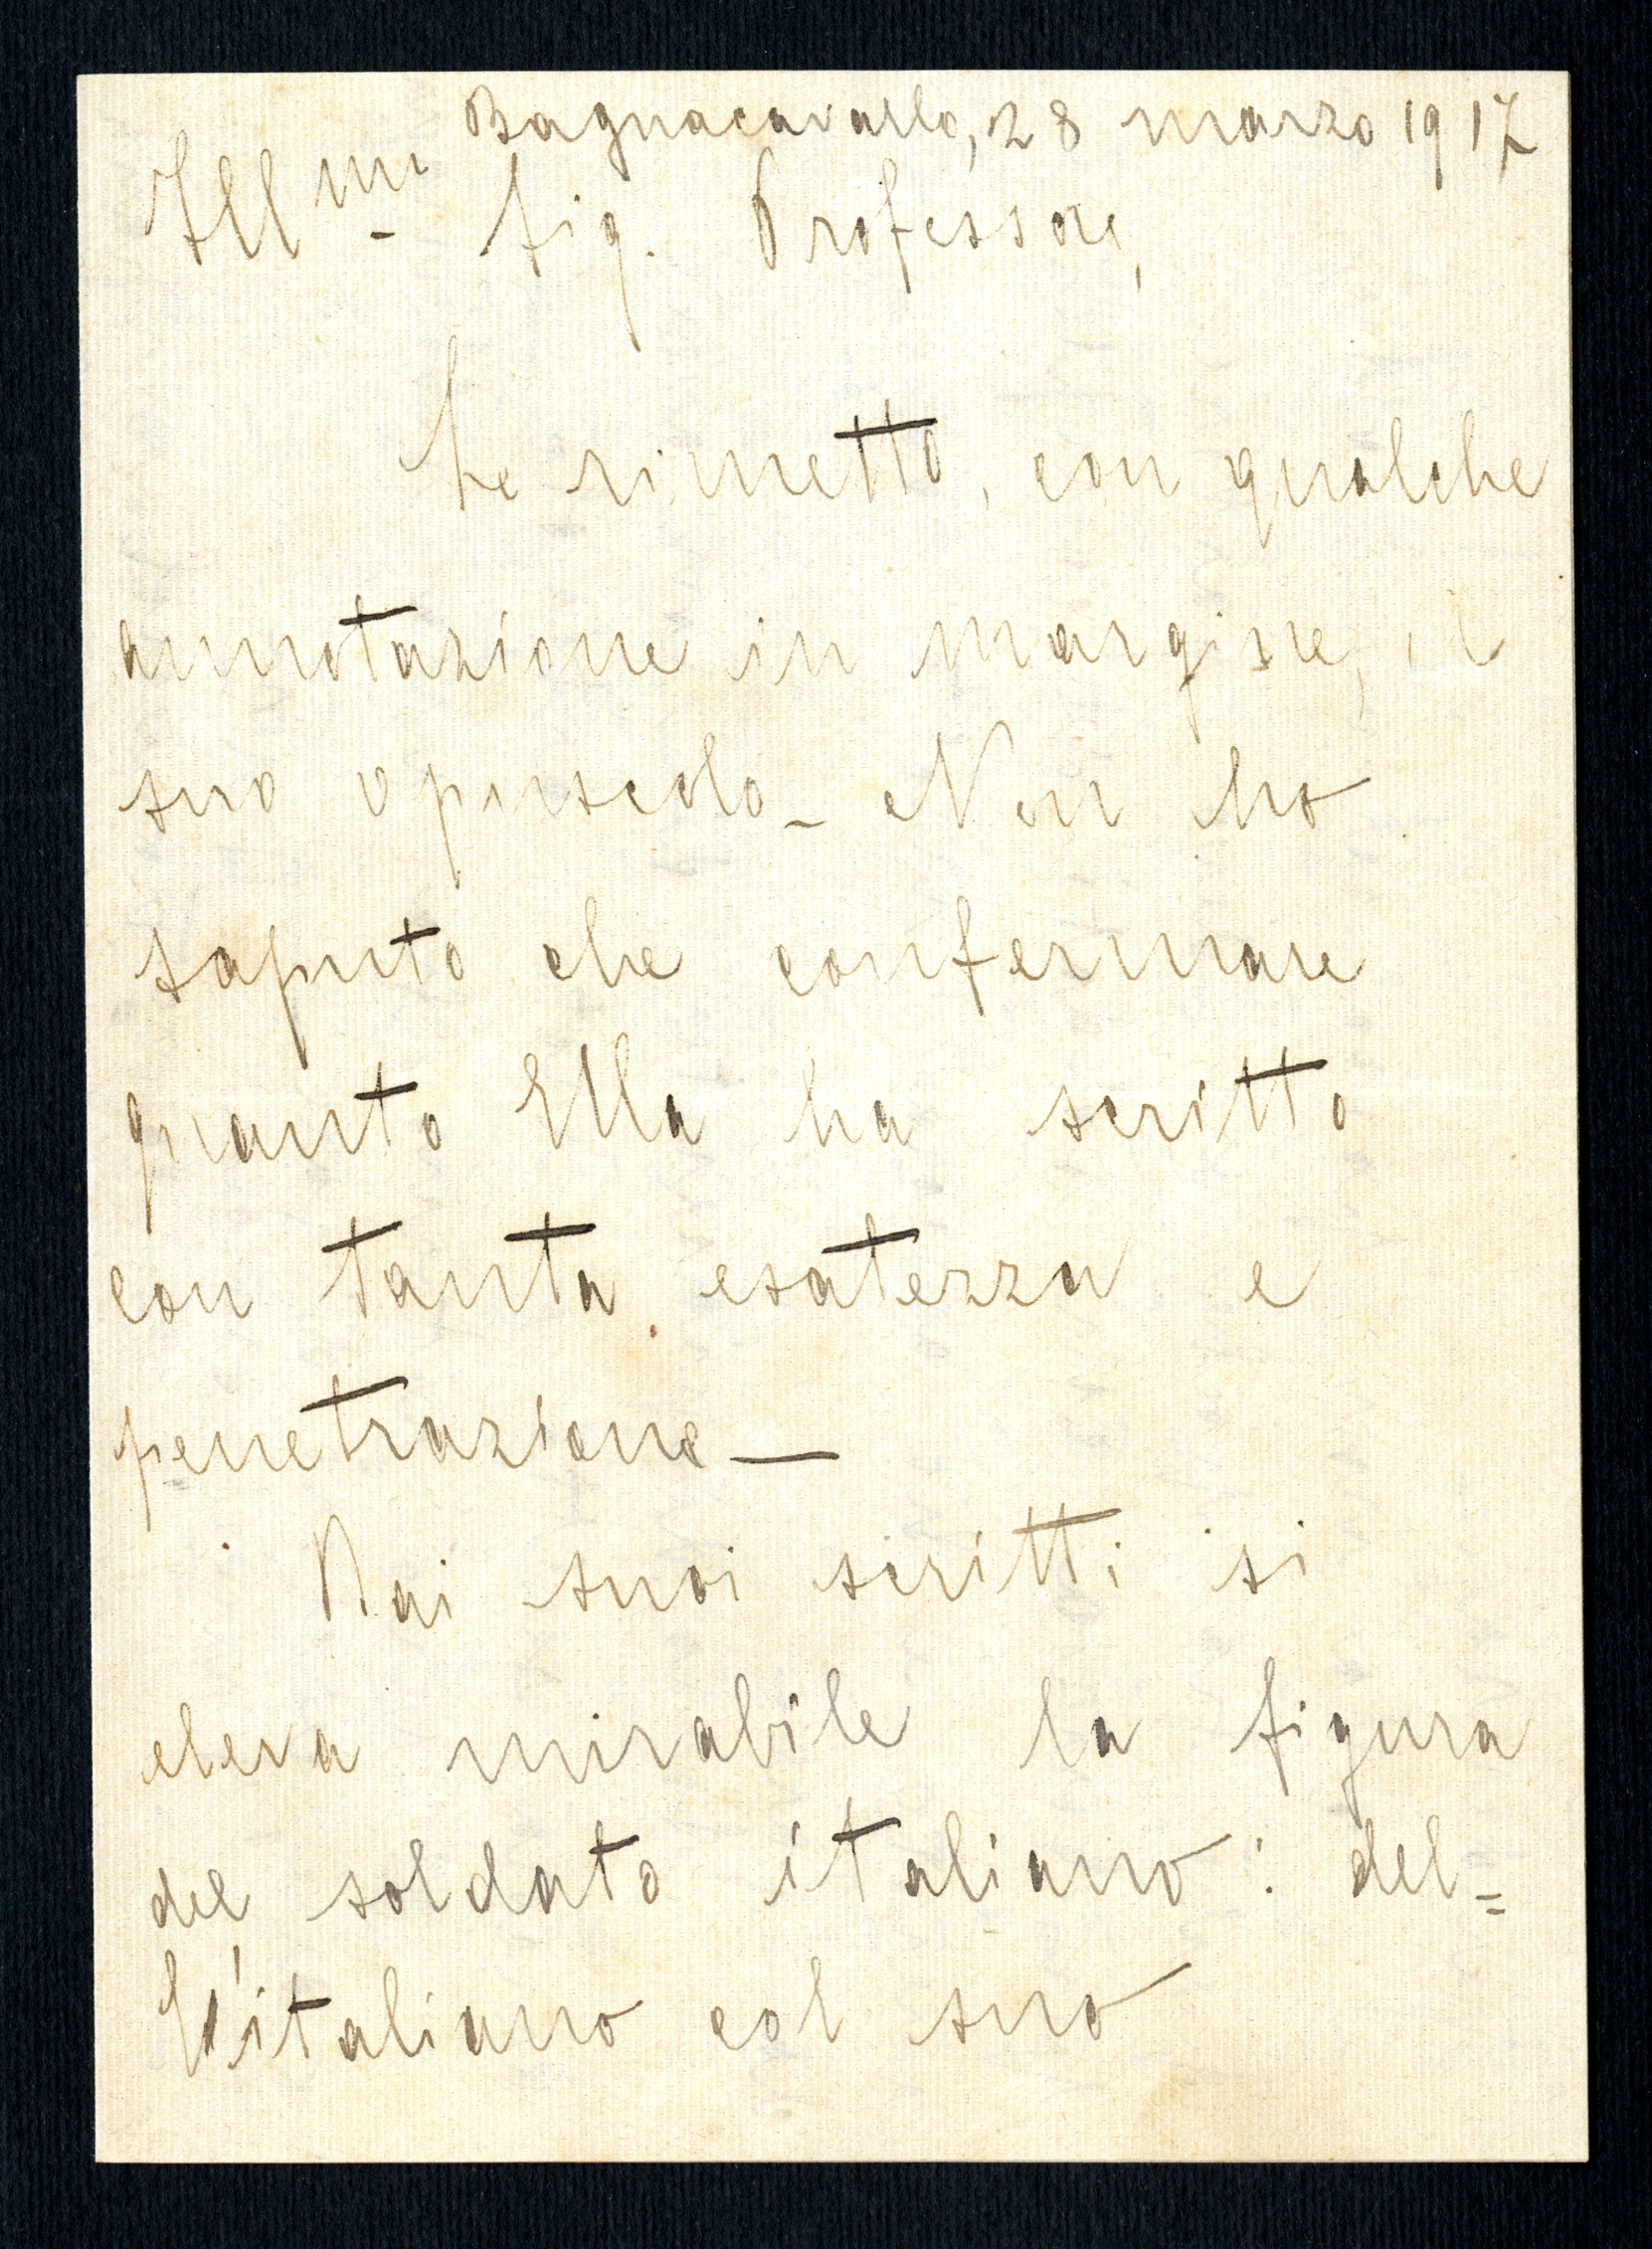 Bagnacavallo, 28 marzo 1917
Ill mo - Sig. Professore,
Le rimetto, con qualche
annotazione in margine, il
suo opuscolo - Non ho
saputo che confermare
quanto Ella ha scritto
con tanta esatezza e
penetrazione —
Dai suoi scritti si
eleva mirabile la figura
del soldato italiano: del=
l'italiano col suo